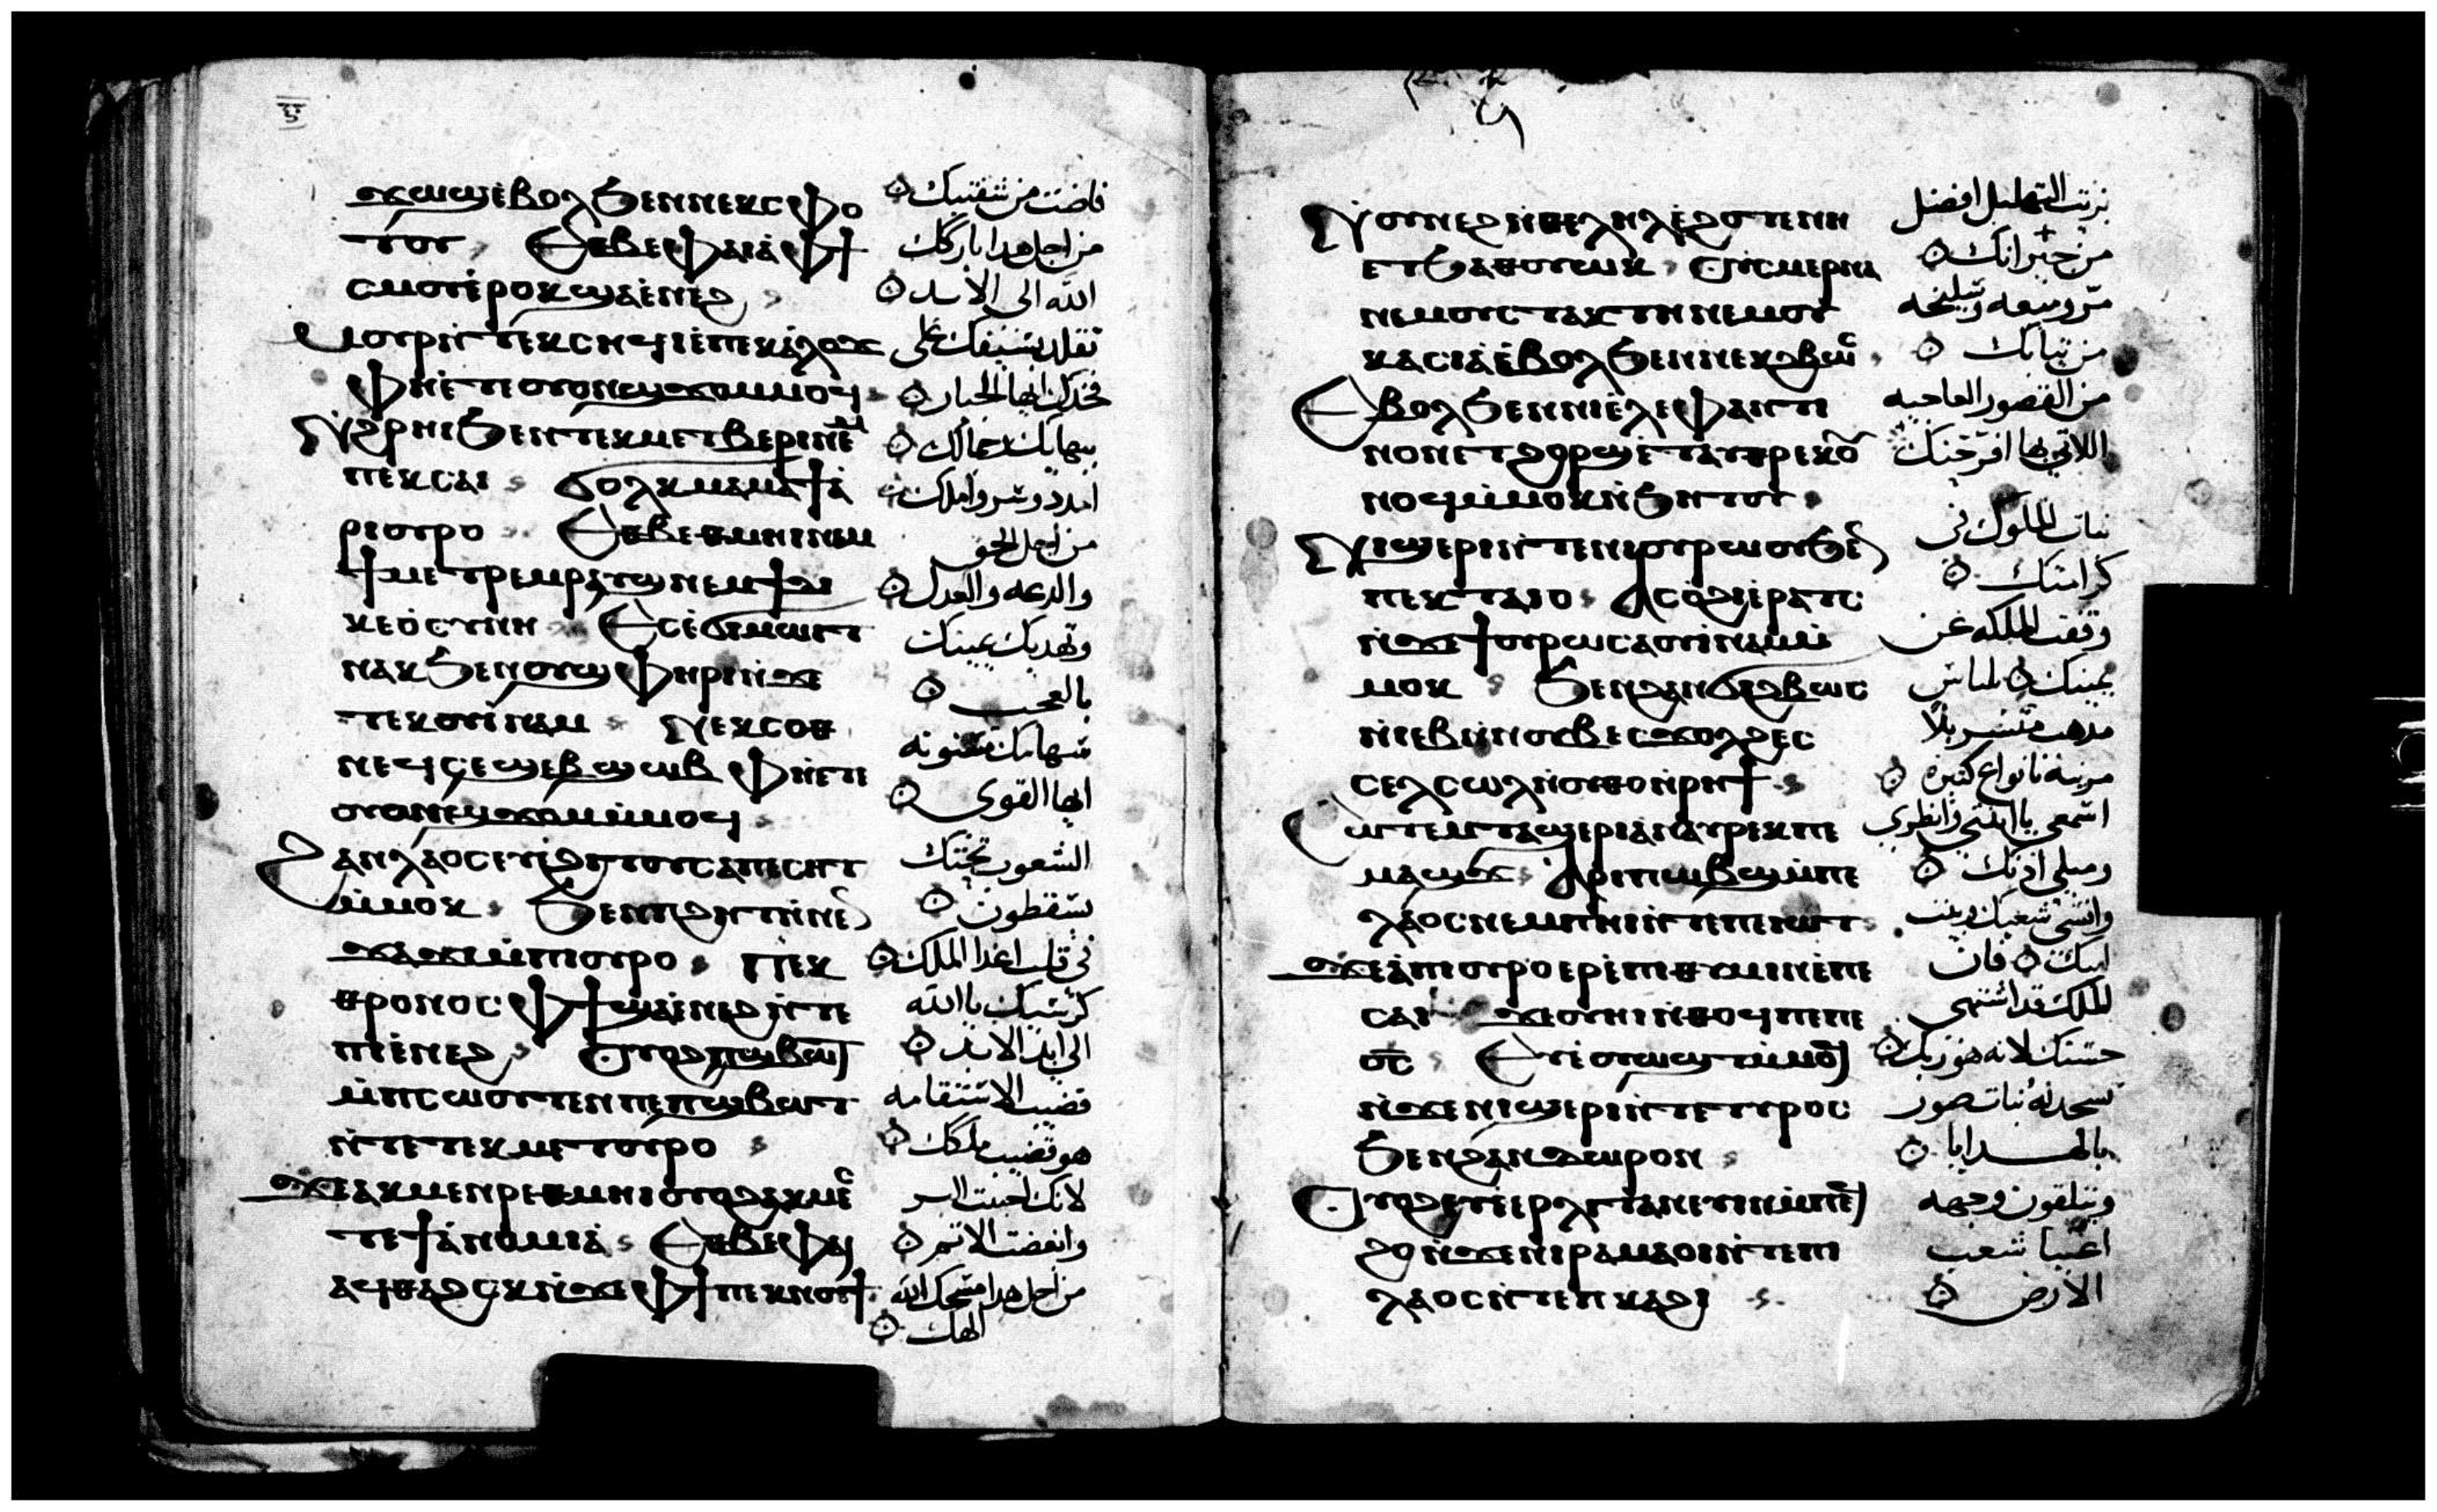 ⲝⲋ
ϫⲱϣ ⲉⲃⲟⲗ ϧⲉⲛ ⲛⲉⲕⲥⲫⲟ
ⲧⲟⲩ ⲉⲑⲃⲉ ⲫⲁⲓ ⲁ̀ ⲫϯ
ⲥⲙⲟⲩ ⲉ̀ⲣⲟⲕ ϣⲁ ⲉ̀ⲛⲉϩ
ⲙⲟⲩⲣ ⲛ̀ⲧⲉⲕⲥⲏϥⲓ ⲉ̀ⲡⲉⲕⲁ̀ⲗⲟϫ
ⲫⲏ ⲉ̀ⲧⲉ ⲟⲩⲟⲛ ϣϫⲟⲙ ⲙⲙⲟϥ
ⲛ̀ϩⲣⲏⲓ ϧⲉⲛ ⲧⲉⲕⲙⲉⲧⲃⲉⲣⲓ ⲛⲉⲙ
ⲡⲉⲕⲥⲁⲓ ϭⲟⲗⲕ ⲙⲁⲙⲁϯ ⲁ̀
ⲣⲓⲟⲩⲣⲟ ⲉⲑⲃⲉ ⲑⲙⲏⲓ ⲛⲉⲙ
ϯⲙⲉⲧⲣⲉⲙⲣⲁⲩϣ ⲛⲉⲙ ϯⲇⲓ
ⲕⲉⲟ̀ⲥⲩⲛⲏ ⲉⲥⲉ̀ϭⲓⲙⲱⲓⲧ
ⲛⲁⲕ ϧⲉⲛ ⲟⲩϣⲫⲏⲣⲓ ⲛ̀ϫⲉ
ⲧⲉⲕⲟⲩⲓ̀ⲛⲁⲙ ⲛⲉⲕⲥⲟⲑ
ⲛⲉϥ ⲥⲉϣⲉⲃϣⲱⲃ ⲫⲏ ⲉ̀ⲧⲉ
ⲟⲩⲟⲛ ϣϫⲟⲙ ⲙ̀ⲙⲟϥ
ϩⲁⲛⲗⲁⲟⲥ ⲉⲩⲉ̀ϩⲉⲓ ⲧⲟⲩ ⲥⲁⲡⲉⲥⲏⲧ
ⲙ̀ⲙⲟⲕ ϧⲉⲛ ⲡϩⲏⲧ ⲛ̀ⲛⲉ
ϫⲁϫⲓ ⲙ̀ⲡⲟⲩⲣⲟ ⲡⲉⲕ
ⲑⲣⲟⲛⲟⲥ ⲫϯ ϣⲁ ⲉ̀ⲛⲉϩ ⲛ̀ⲧⲉ
ⲡⲓⲉ̀ⲛⲉϩ ⲟⲩⲟϩ ⲡϣⲃⲱⲧ
ⲙ̀ⲡⲥⲱⲟⲩⲧⲉⲛ ⲡⲉ ⲡϣⲃⲱⲧ
ⲛ̀ⲧⲉ ⲧⲉⲕⲙⲉⲧⲟⲩⲣⲟ
ϫⲉ ⲁⲕⲙⲉⲛⲣⲉ ⲑⲙⲏⲓ ⲟⲩⲟϩ ⲁⲕⲙⲉⲥ
ⲧⲉ ϯⲁ̀ⲛⲟⲙⲓⲁ̀ ⲉⲑⲃⲉ ⲫⲁⲓ
ⲁϥⲑⲁϩⲥⲕ ⲛ̀ϫⲉ ⲫϯ ⲡⲉⲕⲛⲟⲩϯ
فاضت من شفتيك
من اجل هدا باركك
الله الى الابد
تقلد سيفك على
فخدك ايها الجبار
ببهايك وجمالك
امدد وسر واملك
من اجل الحق
والدعه والعدل
وتهديك يمينك
بالعجب
سهامك مسنونه
ايها القوى
الشعوب تحتك
يسقطون
فى قلب اعدا الملك
كرسيك يا الله
الى ابد الابد
قضيب الاستقامه
هو قضيب ملكك
لانك احببت البر
وابغضت الاتم
من اجل هدا مسحك الله
الهك
ⲛ̀ⲟⲩⲛⲉϩ ⲛ̀ⲑⲉⲗⲏⲗ ⲉ̀ϩⲟⲧⲉ ⲛⲏ
ⲉⲧϧⲁⲑⲟⲩⲱⲕ ⲟⲩⲥⲙⲉⲣⲛⲁ
ⲛⲉⲙ ⲟⲩⲥⲧⲁⲕⲧⲏ ⲛⲉⲙ ⲟⲩ
ⲕⲁⲥⲓⲁ̀ ⲉ̀ⲃⲟⲗ ϧⲉⲛ ⲛⲉⲕϩⲃⲱⲥ
ⲉ̀ⲃⲟⲗ ϧⲉⲛ ⲛⲓⲉ̀ⲗⲉⲫⲁⲛⲧⲓ
ⲛⲟⲛ ⲉⲧϩⲟⲣϣ ⲉ̀ⲧⲁⲩⲑⲣⲉⲕⲟⲩ
ⲛⲟϥ ⲙ̀ⲙⲟⲕ ⲛ̀ϧⲏⲧⲟⲩ
ⲛⲓϣⲉⲣⲓ ⲛ̀ⲧⲉ ⲛⲓⲟⲩⲣⲱⲟⲩ ϧⲉⲛ
ⲡⲉⲕⲧⲁⲓⲟ ⲁⲥⲟ̀ϩⲓ ⲉ̀ⲣⲁⲧⲥ
ⲛ̀ϫⲉ ϯⲟⲩⲣⲱ ⲥⲁⲟⲩⲓ̀ⲛⲁⲙ ⲙ̀
ⲙⲟⲕ ϧⲉⲛ ϩⲁⲛϩⲃⲱⲥ
ⲛ̀ⲓⲉⲃ ⲛ̀ⲛⲟⲩⲃ ⲉⲥϫⲟⲗϩ ⲉⲥ
ⲥⲉⲗⲥⲱⲗ ϧⲉⲛ ⲟⲩⲑⲟ ⲛ̀ⲣⲏϯ
ⲥⲱⲧⲉⲙ ⲧⲁϣⲉⲣⲓ ⲁ̀ⲛⲁⲩ ⲣⲉⲕ ⲡⲉ
ⲙⲁϣϫ ⲁⲣⲓⲡⲱⲃϣ ⲙ̀ⲡⲉ
ⲗⲁⲟⲥ ⲛⲉⲙ ⲡⲏⲓ ⲛ̀ⲧⲉ ⲡⲉⲓⲱⲧ
ϫⲉ ⲁ̀ ⲡⲟⲩⲣⲟ ⲉⲣⲉ̀ⲡⲓⲑⲩⲙⲓⲛ ⲉ̀ⲡⲉ
ⲥⲁⲓ ϫⲉ ⲟⲩⲏⲓ ⲛ̀ⲑⲟϥ ⲡⲉ ⲡⲉ
ⲟ̅ⲥ̅ ⲉⲩⲉ̀ⲟⲩⲱϣⲧ ⲙ̀ⲙⲟϥ
ⲛ̀ϫⲉ ⲛⲓϣⲉⲣⲓ ⲛ̀ⲧⲉ ⲧⲩⲣⲟⲥ
ϧⲉⲛ ϩⲁⲛⲇⲱⲣⲟⲛ
ⲟⲩⲟϩ ⲉⲩⲉ̀ⲉⲣⲗⲓⲧⲁⲛⲉⲩⲓⲛ ⲙ̀ⲡⲉϥ
ϩⲟ ⲛ̀ϫⲉ ⲛⲓⲣⲁⲙⲁⲟⲓ ⲛ̀ⲧⲉ ⲡⲓ
ⲗⲁⲟⲥ ⲛ̀ⲧⲉ ⲡⲕⲁϩⲓ
بزيت التهليل افضل
من جيرانك
مر وميعه وسليخه
من تيابك
من القصور العاجيه
اللاتى بها افرحنك
بنات الملوك فى
كرامتك
وقفت الملكه عن
يمينك بلباس
مدهب متسربلا
مزينه بانواع كتيره
اسمعى يا ابنتى وانظرى
وميلى ادنك
وانسى شعبك وبيت
ابيك فان
الملك قد اشتهى
حسنك لانه هو ربك
تسجد له بنات صور
بالهدايا
ويتلقون وجهه
اغنيا شعب
الارض